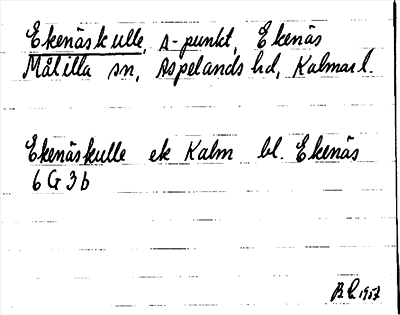 Ekenäskulle, A-punkt, Ekenäs
Målilla sn, Aspelands hd, Kalmar l.
Ekenäskulle ek Kalm bl. Ekenäs
6 G 3 b